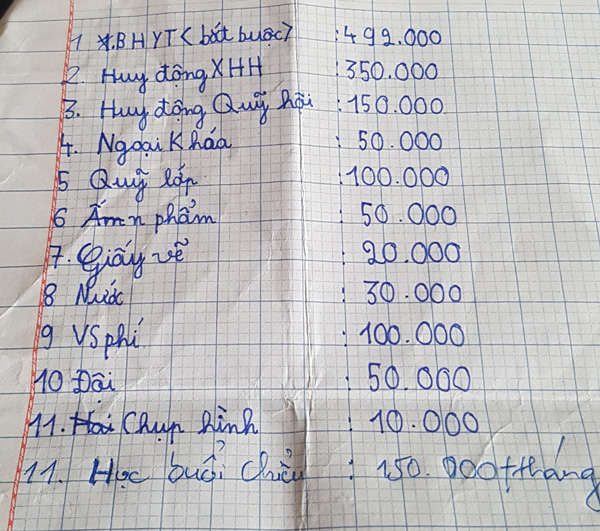 1 BHYT < bắt buộc> : 492.000
2. Huy động XHH : 350.000
3. Huy động Quỹ hội : 150.000
4. Ngoại Kháa : 50.000
5 Quỹ lớp : 100.000
6 Ấn phẩm : 50.000
7. Giấy vẽ : 20.000
8 Nước : 30.000
9 VS phí : 100.000
10 Đội : 50.000
11. Chụp hình : 10.000
11. Học buổi chiều : 150.000 + tháng